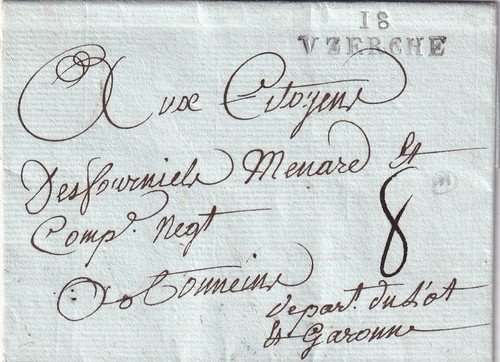 18
VZERCHE
Aux Citoyens
Desfourniels Menard Et
Compe. Negt
8
a Tonneins
Depart. du Lot
Et Garonne